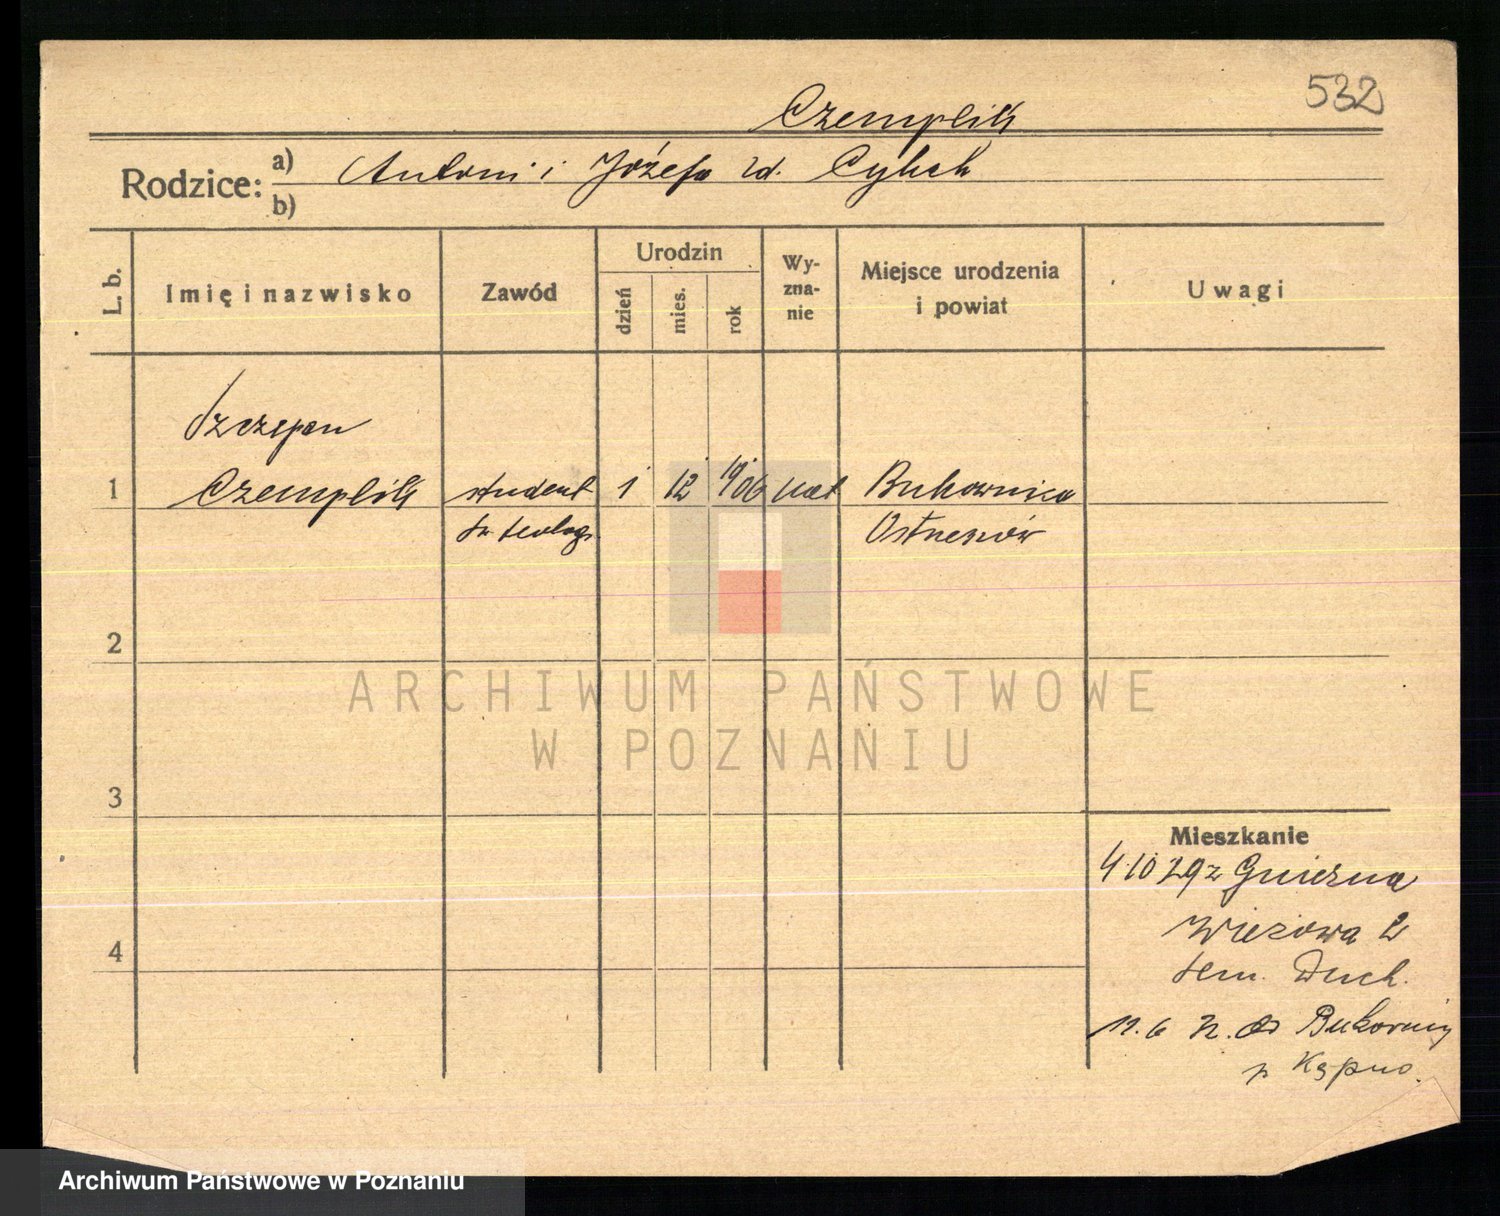 532
Czemplik
Rodzice: a) Antoni i Józefa zd.
b)
L. b.
Imię i nazwisko
Zawód
Urodzin
dzień
mies.
rok
Wy-
zna-
nie
Miejsce urodzenia
i powiat
Uwagi
Szczepan
1 Czemplik student 1 12 1906 kat Bukownica
św. teolog. Ostrzeszów
2
3
4
Mieszkanie
4.10 29 z Gniezna
Wieżowa 2
Sem. Duch.
11.6 do Bukownicy
p Kępno.
ARCHIWUM PAŃSTWOWE
W POZNANIU
Archiwum Państwowe w Poznaniu